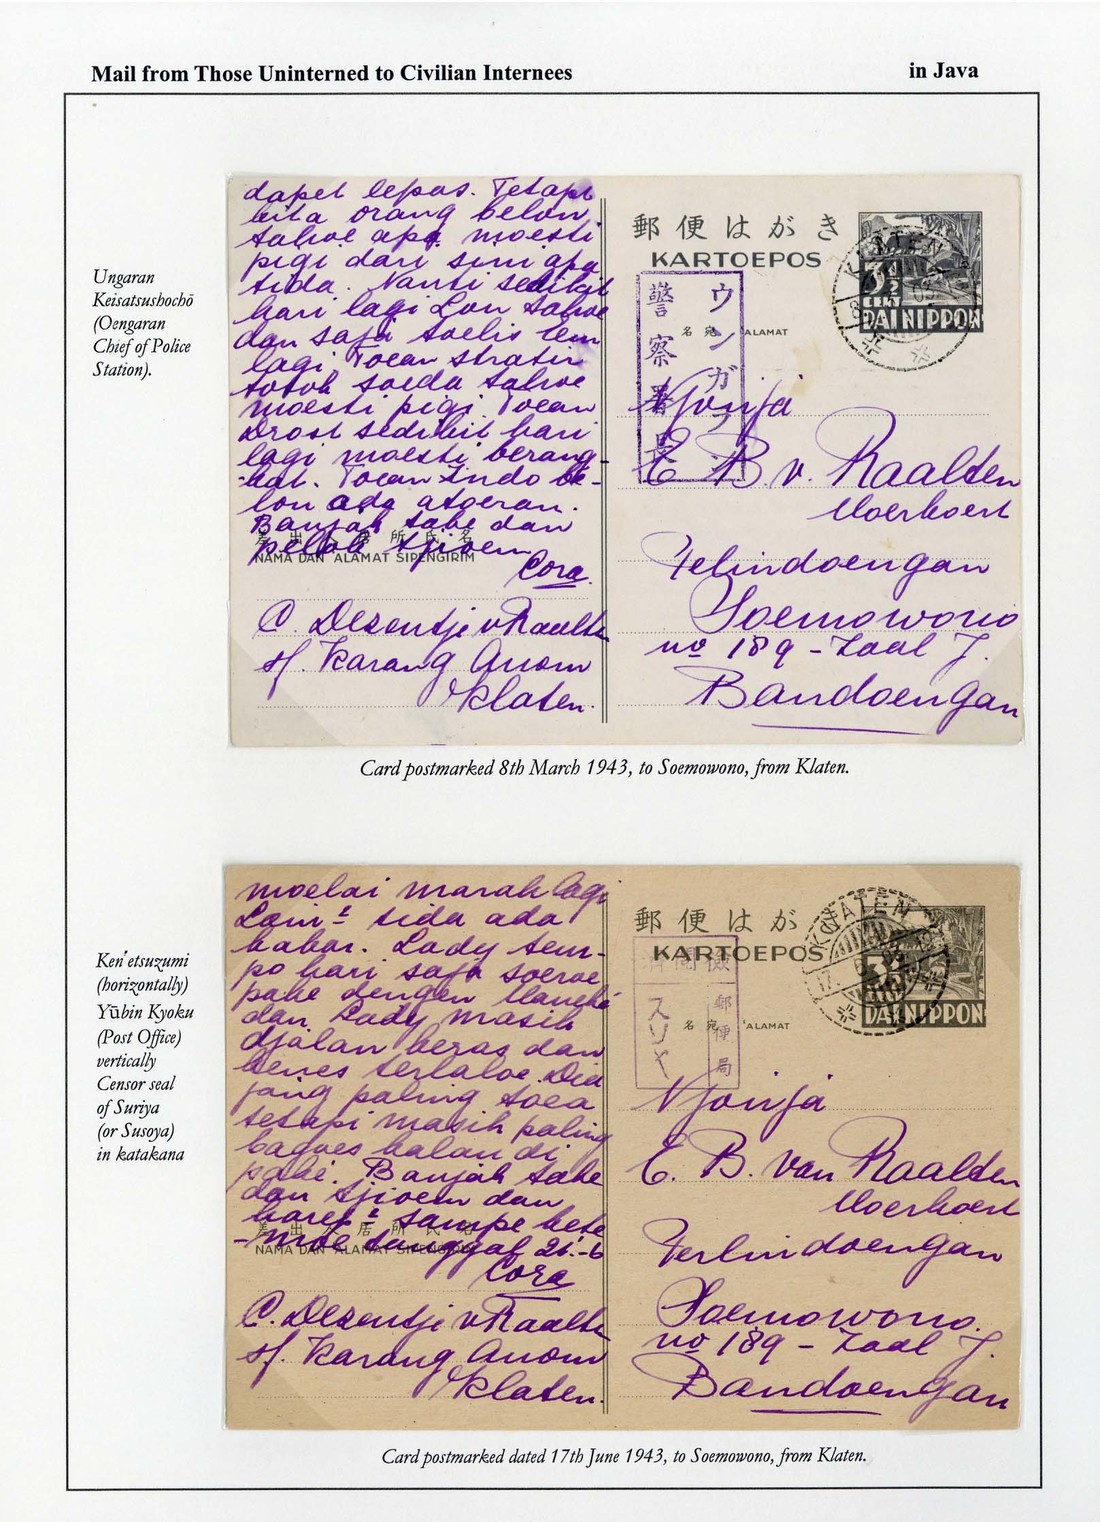 Mail from Those Uninterned to Civilian Internees
in Java
Ungaran
Keisatsushochō
(Oengaran
Chief of Police
Station).
dapet lepas. Tetapi
kita orang belon
tahoe apa moesti
pigi dari sini apa
tida. Nanti sedikit
hari lagi Lou tahoe
dan saja toelis
lagi. Toean
totok soeda tahoe
moesti pigi. Toean
Drost sedikit hari
lagi moesti berang-
kat. Toean Indo be-
lon ada atoeran.
Banjak tabe dan
peloek tjioem
Cora.
差出人居所氏名
NAMA DAN ALAMAT SIPENGIRIM
C. Dezentje v Raalte
sf. Karang Anom
Klaten.
郵便はがき
KARTOEPOS
KLATEN
3½
CENT
DAI NIPPON
名宛 ALAMAT
ウンガラン
警察署長
Njonja
E. B. v. Raalten
Moerkoert
Felindoengan
Soemowono
no 189 - Zaal J.
Bandoengan
Card postmarked 8th March 1943, to Soemowono, from Klaten.
Ken'etsuzumi
(horizontally)
Yūbin Kyoku
(Post Office)
vertically
Censor seal
of Suriya
(or Susoya)
in katakana
moelai marah lagi
Lain² tida ada
kabar. Lady tem-
po hari saja soeroe
pake dengen
dan Lady masih
djalan keras dan
betes terlaloe. Dia
jang paling toea
tetapi masih paling
bagoes kalau di
pake. Banjak tabe
dan tjioem dan
harep² sampe kete-
moe tanggal 26-6
Cora
差出人居所氏名
NAMA DAN ALAMAT SIPENGIRIM
C. Dezentje v Raalte
sf. Karang Anom
Klaten.
郵便はが
KARTOEPOS
KLATEN
DAI NIPPON
名宛 ALAMAT
検閲済
郵便局
スリヤ
Njonja
E. B. van Raalten
Moerkoert
Verlindoengan
Soemowono.
no 189 - Zaal J.
Bandoengan
Card postmarked dated 17th June 1943, to Soemowono, from Klaten.